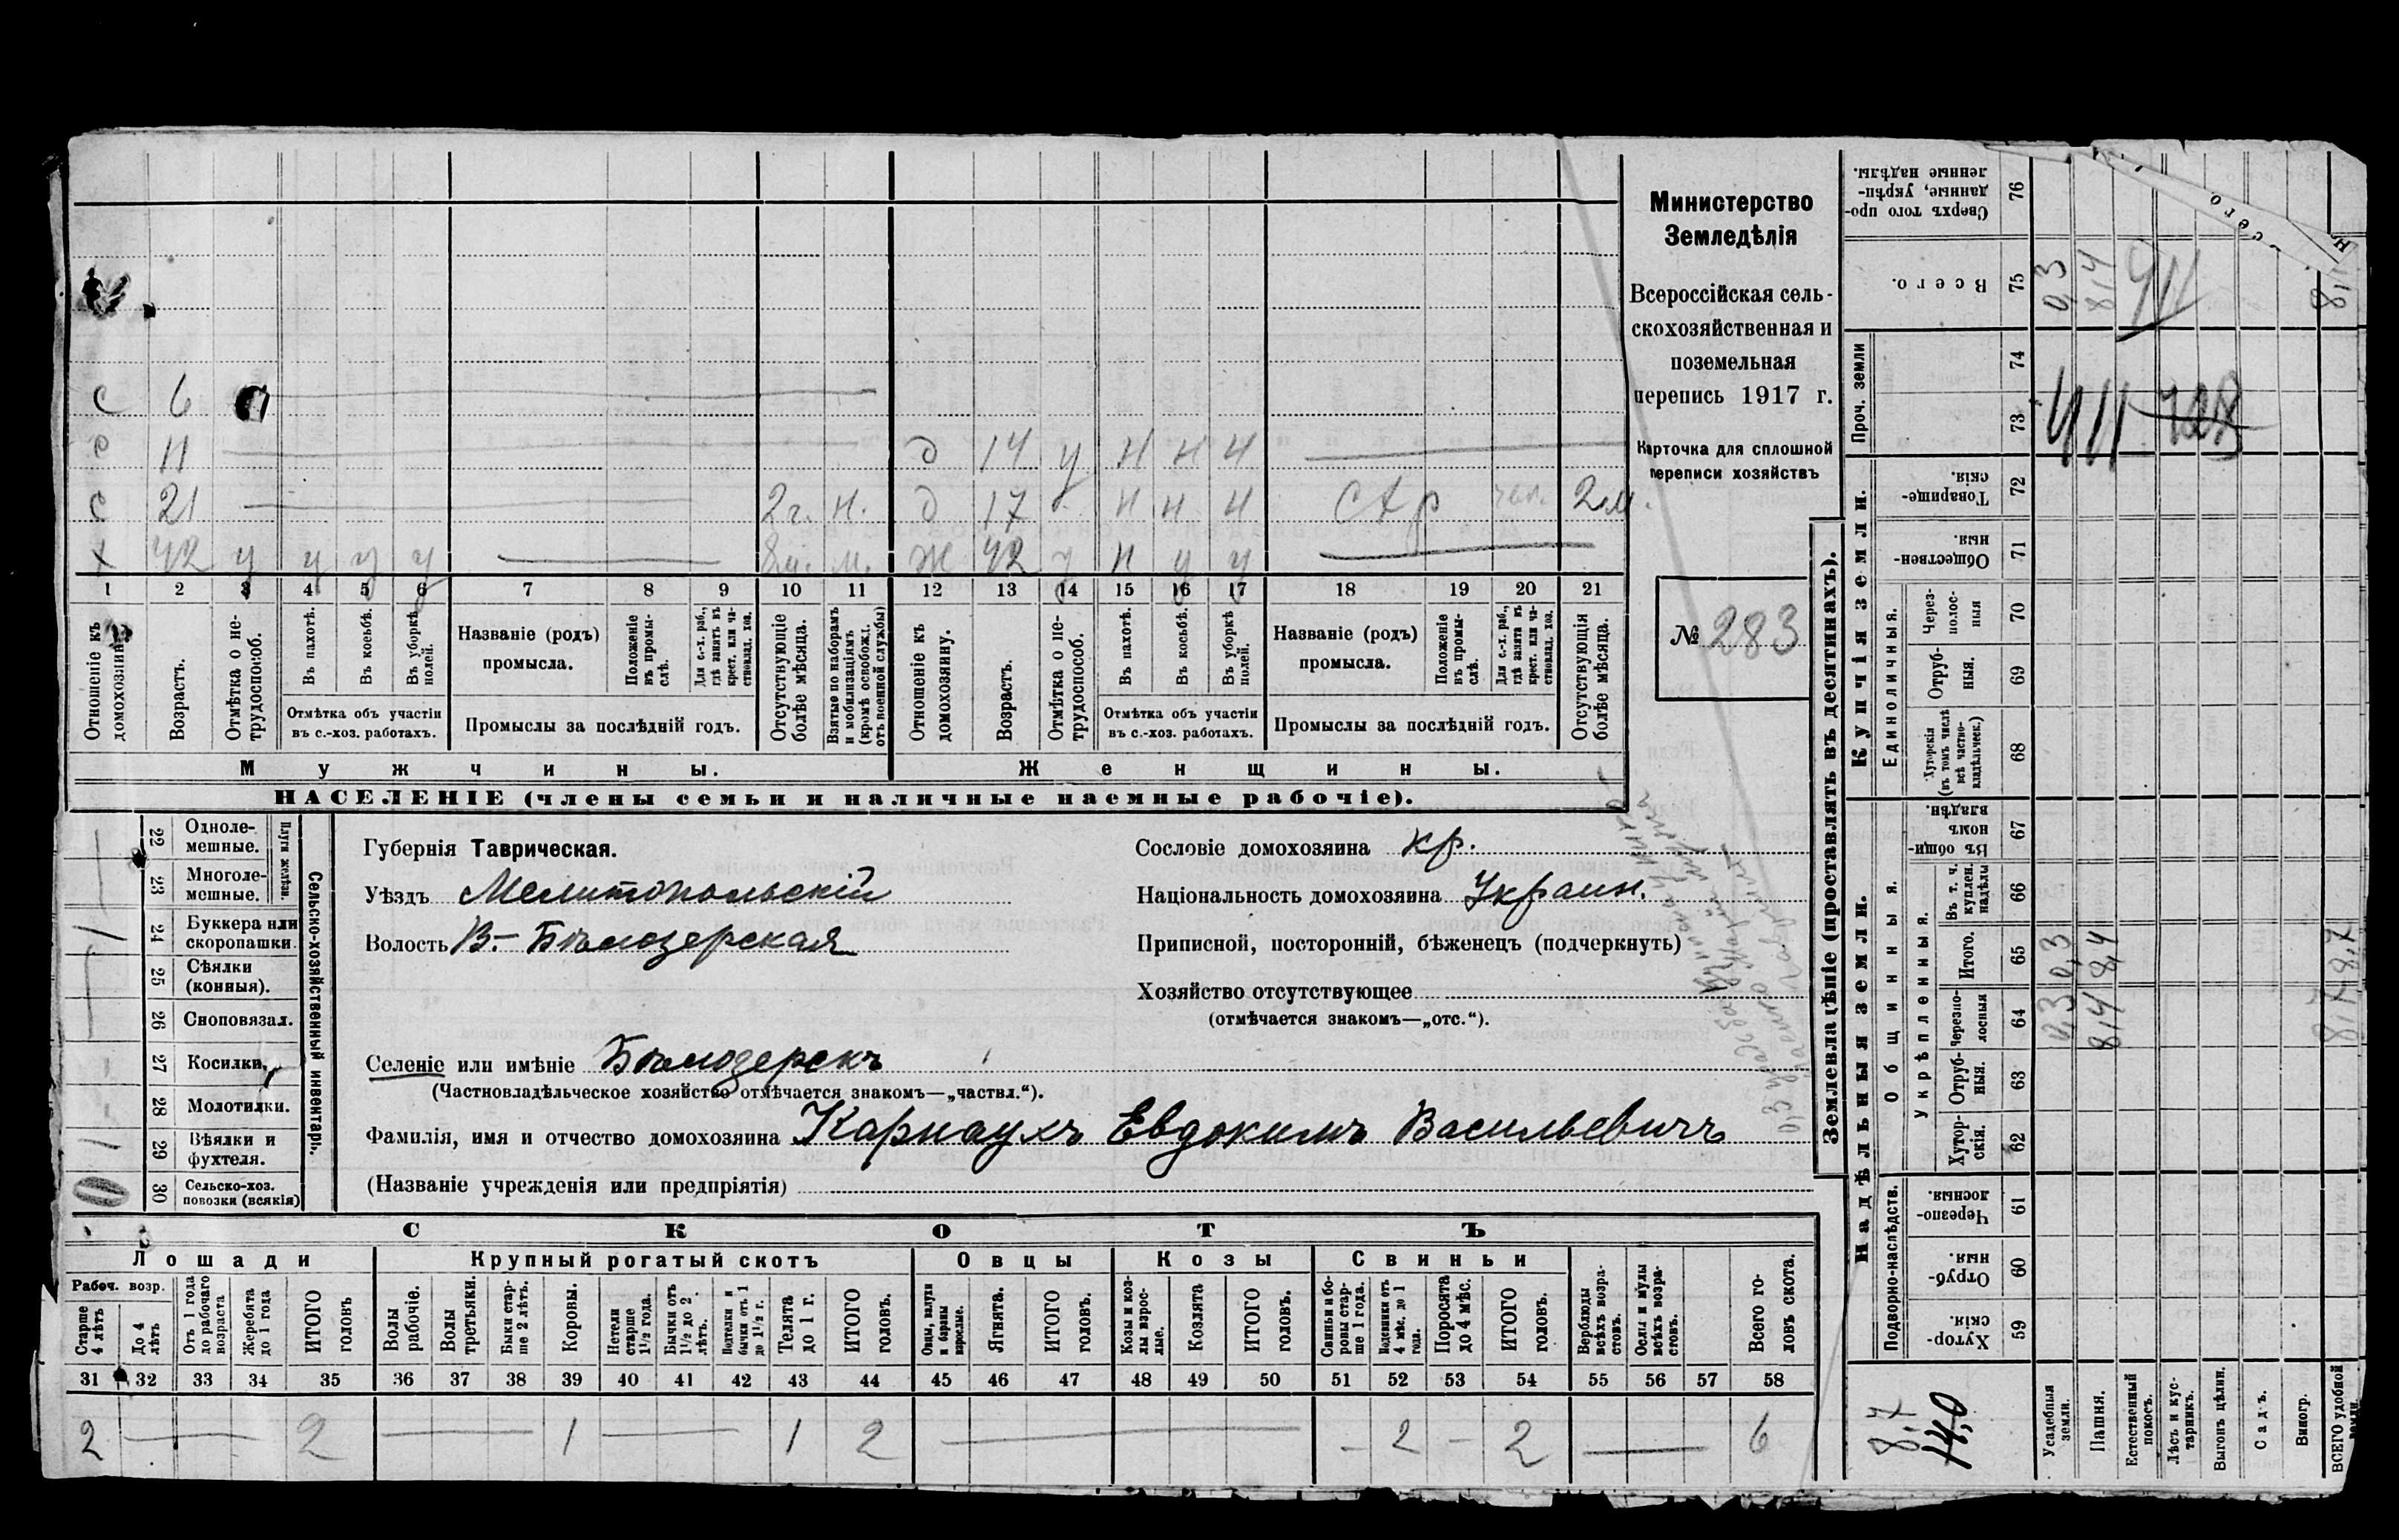 Министерство
Земледѣлія
Всероссійская сель-
скохозяйственная и
поземельная
перепись 1917 г.
Карточка для сплошной
переписи хозяйствъ
№ 283
с 6
с 11
с 21 2 г. н.
х 42 у у у у 8 м. м.
д 14 у н н н
д 17 н н н стр 2 м.
ж 42 у н у у
1 2 3 4 5 6 7 8 9 10 11 12 13 14 15 16 17 18 19 20 21
Отношеніе къ домохозяину.
Возрастъ.
Отмѣтка о не-трудоспособ.
Въ пахотѣ.
Въ косьбѣ.
Въ уборкѣ полей.
Отмѣтка объ участіи
въ с.-хоз. работахъ.
Названіе (родъ)
промысла.
Положеніе въ промы-слѣ.
Для с.-х. раб., гдѣ занятъ въ крест. или ча-стновлад. хоз.
Промыслы за послѣдній годъ.
Отсутствующіе болѣе мѣсяца.
Взятые по наборамъ и мобилизаціямъ (кромѣ освобожд. отъ военной службы)
Отношеніе къ домохозяину.
Возрастъ.
Отмѣтка о не-трудоспособ.
Въ пахотѣ.
Въ косьбѣ.
Въ уборкѣ полей.
Отмѣтка объ участіи
въ с.-хоз. работахъ.
Названіе (родъ)
промысла.
Положеніе въ промы-слѣ.
Для с.-х. раб., гдѣ занята въ крест. или ча-стновлад. хоз.
Промыслы за послѣдній годъ.
Отсутствующія болѣе мѣсяца.
Мужчины.
Женщины.
НАСЕЛЕНІЕ (члены семьи и наличные наемные рабочіе).
Сельско-хозяйственный инвентарь.
Плуги желѣзн.
22 Одноле-мешные.
23 Многоле-мешные. 1
24 Буккера или скоропашки. 1
25 Сѣялки (конныя).
26 Сноповязал.
27 Косилки.
28 Молотилки.
29 Вѣялки и фухтеля. 1
30 Сельско-хоз. повозки (всякія)
Губернія Таврическая.
Уѣздъ Мелитопольскій
Волость В.-Бѣлозерская
Сословіе домохозяина кр.
Національность домохозяина Украин.
Приписной, посторонній, бѣженецъ (подчеркнуть)
Хозяйство отсутствующее
(отмѣчается знакомъ—„отс.“).
Селеніе или имѣніе Бѣлозерскъ
(Частновладѣльческое хозяйство отмѣчается знакомъ—„частвл.“).
Фамилія, имя и отчество домохозяина Карнаухъ Евдокимъ Васильевичъ
(Названіе учрежденія или предпріятія)
СКОТЪ
Лошади Крупный рогатый скотъ Овцы Козы Свиньи
Рабоч. возр.
Старше 4 лѣтъ
До 4 лѣтъ
Отъ 1 года до рабочаго возраста
Жеребята до 1 года
ИТОГО головъ
Волы рабочіе.
Волы третьяки.
Быки стар-ше 2 лѣтъ.
Коровы.
Нетели старше 1½ года.
Бычки отъ 1½ до 2 лѣтъ.
Подтелки и бычки отъ 1 до 1½ г.
Телята до 1 г.
ИТОГО головъ.
Овцы, валухи и бараны взрослые.
Ягнята.
ИТОГО головъ.
Козы и коз-лы взрос-лые.
Козлята
ИТОГО головъ.
Свиньи и бо-ровы стар-ше 1 года.
Подсвинки отъ 4 мѣс. до 1 года.
Поросята до 4 мѣс.
ИТОГО головъ.
Верблюды всѣхъ возра-стовъ.
Ослы и мулы всѣхъ возра-стовъ.
Всего го-ловъ скота.
31 32 33 34 35 36 37 38 39 40 41 42 43 44 45 46 47 48 49 50 51 52 53 54 55 56 57 58
2 — 2 — 1 — 1 2 — - 2 - 2 — 6
Землевладѣніе (проставлять въ десятинахъ).
Надѣльныя земли.
Купчія земли.
Проч. земли
Подворно-наслѣдств.
Общинныя.
Укрѣпленныя.
Единоличныя.
Хутор-скія. 59
Отруб-ныя. 60
Черезпо-лосныя. 61
Хутор-скія. 62
Отруб-ныя. 63
Черезпо-лосныя 64
Итого. 65
Въ т. ч. куплен. надѣлы 66
Въ общи-номъ владѣн. 67
Хуторскія (въ томъ числѣ всѣ частно-владѣльческ.) 68
Отруб-ныя. 69
Через-полос-ныя 70
Обществен-ныя. 71
Товарище-скія. 72
73
74
Всего. 75
Сверхъ того про-данные, укрѣп-ленные надѣлы. 76
Усадебныя земли. 0,3 0,3 0,3
Пашня. 8,4 8,4 8,4
Естественный покосъ.
Лѣсъ и кус-тарникъ.
Выгонъ цѣлин.
Садъ.
Виногр.
ВСЕГО удобной земли. 8,7 8,7
8,7
14,0